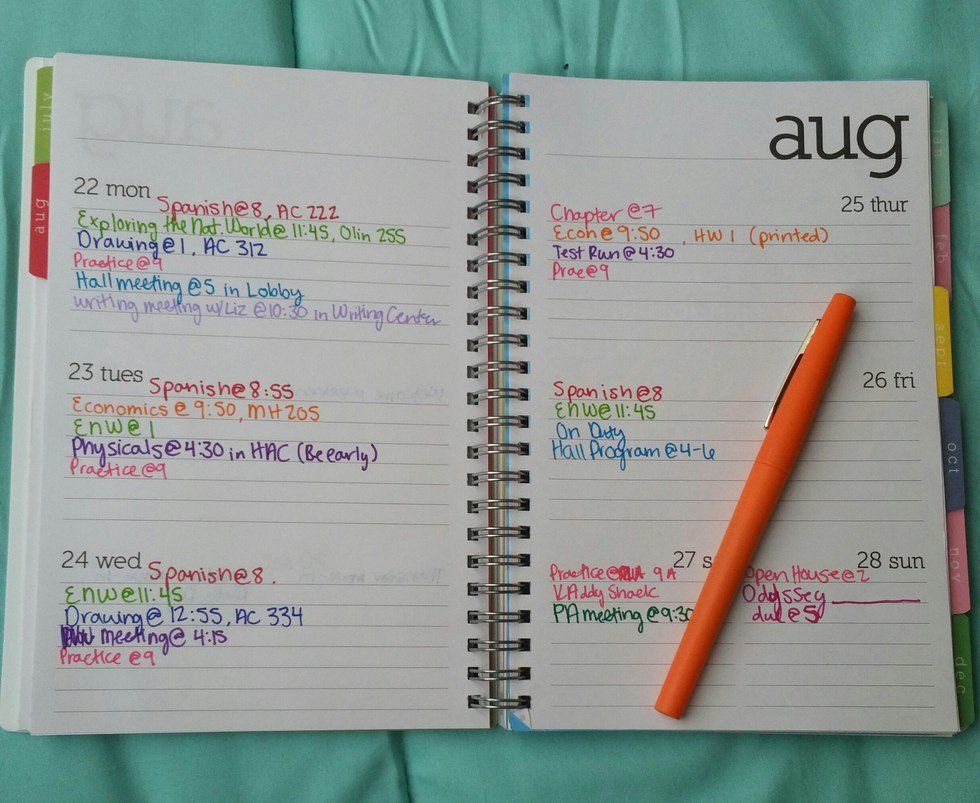 july
aug
22 mon
Spanish@8, AC 222
Exploring the Nat. World @ 11:45, Olin 255
Drawing @ 1, AC 312
Practice@9
Hall meeting @5 in Lobby
writing meeting w/Liz @10:30 in Writing Center
23 tues
Spanish@8:55
Economics @ 9:50, MH 205
ENW@1
Physicals@4:30 in HAC (Be early)
Practice@9
24 wed
Spanish@8.
ENW@11:45
Drawing@ 12:55, AC 334
meeting@ 4:15
Practice @9
aug
25 thur
Chapter @7
Econ@ 9:50, HW 1 (printed)
Test Run @ 4:30
Prac@9
26 fri
Spanish@8
ENW@11:45
On Duty
Hall Program @4-6
27 s
Practice@ 9A
KAddy Shack
PA meeting @9:30
28 sun
Open House@2
Odyssey
due @5
jan
feb
sept
oct
nov
dec